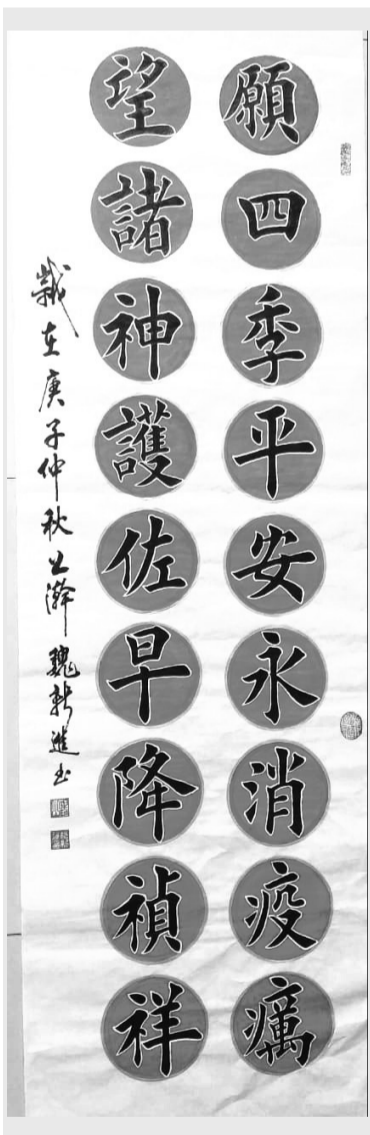 願四季平安永消疫癘
望諸神護佐早降禎祥
歲在庚子仲秋上澣魏新進书